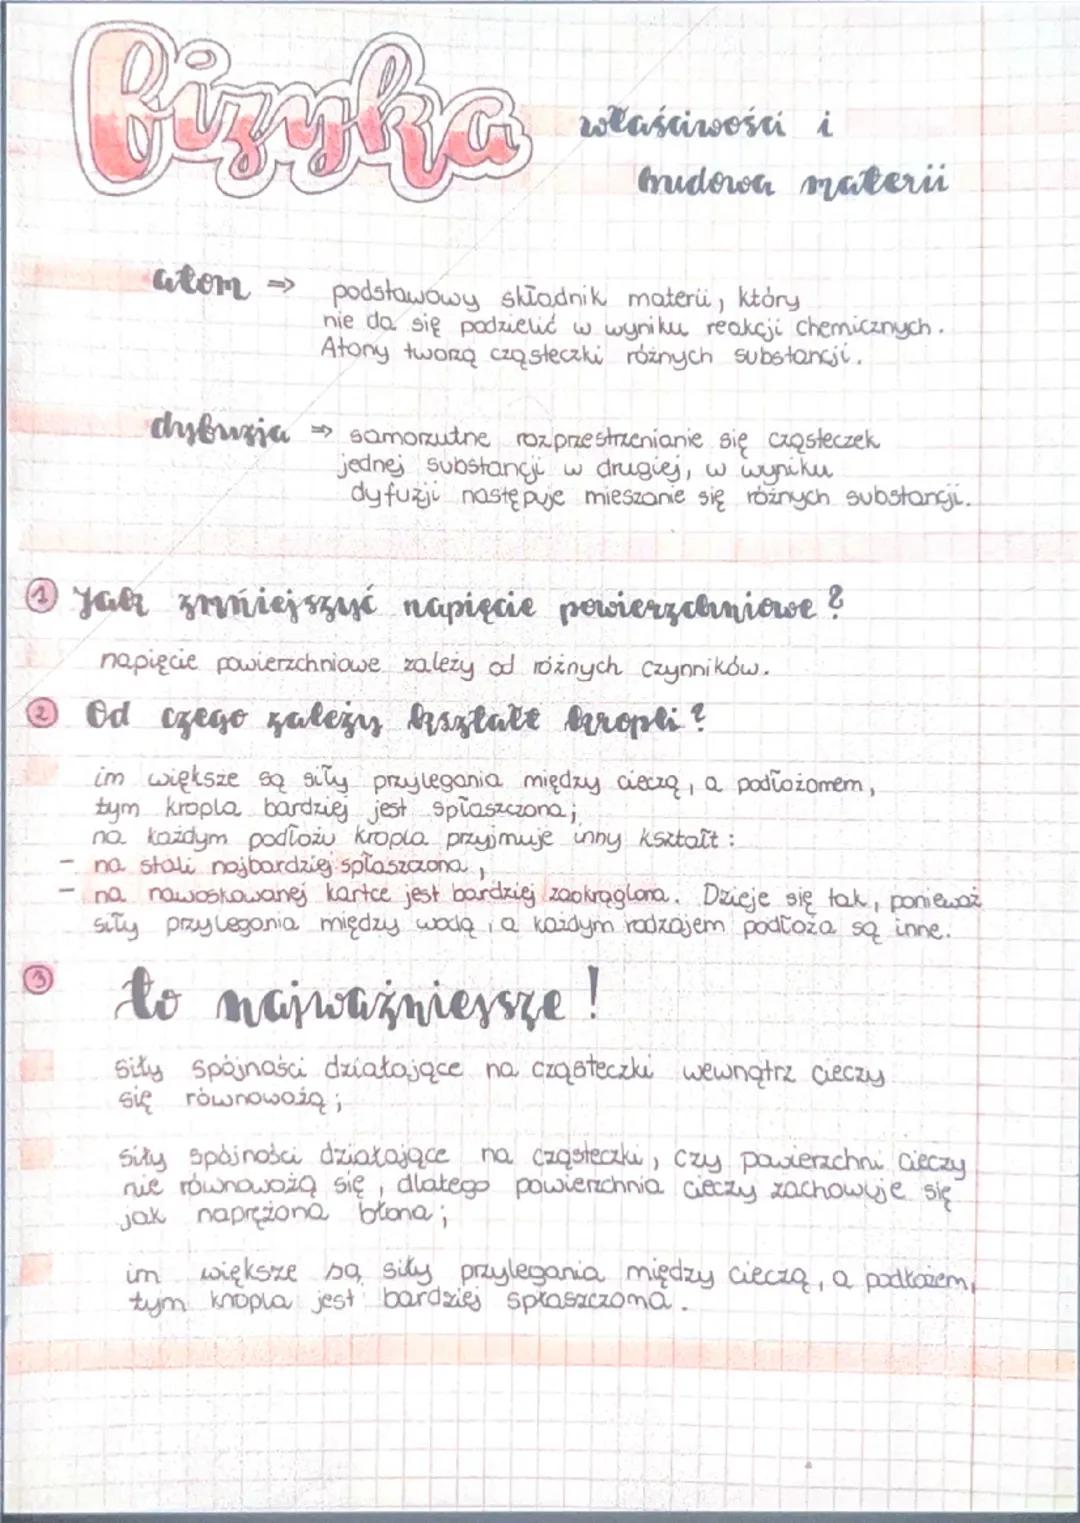 fizyka
właściwości i
budowa materii
atom ⇒ podstawowy składnik materii, który
nie da się podzielić w wyniku reakcji chemicznych.
Atomy tworzą cząsteczki różnych substancji.
dyfuzja ⇒ samorzutne rozprzestrzenianie się cząsteczek
jednej substancji w drugiej, w wyniku
dyfuzji następuje mieszanie się różnych substancji.
1 Jak zmniejszyć napięcie powierzchniowe?
napięcie powierzchniowe zależy od różnych czynników.
2 Od czego zależy kształt kropli?
im większe są siły przylegania między cieczą, a podłożamem,
tym kropla bardziej jest spłaszczona;
na każdym podłożu kropla przyjmuje inny kształt:
- na stali najbardziej spłaszczona,
- na nawoskowanej kartce jest bardziej zaokrąglona. Dzieje się tak, ponieważ
siły przylegania między wodą, a każdym rodzajem podłoża są inne.
3 to najważniejsze!
siły spójności działające na cząsteczki wewnątrz cieczy
się równoważą;
siły spójności działające na cząsteczki, czy powierzchni cieczy
nie równoważą się, dlatego powierzchnia cieczy zachowuje się
jak naprężona błona;
im większe są siły przylegania między cieczą, a podłożem,
tym kropla jest bardziej spłaszczona.